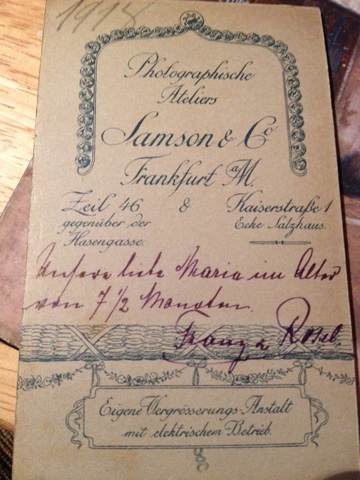 1918
Photographische
Ateliers
Samson & Co
Frankfurt a/M.
Zeil 46 & Kaiserstraße 1
gegenüber der Ecke Salzhaus.
Hasengasse.
Unsere liebe Maria im Alter
von 7 1/2 Monaten.
Franz u Rosel.
Eigene Vergrösserungs-Anstalt
mit elektrischem Betrieb.